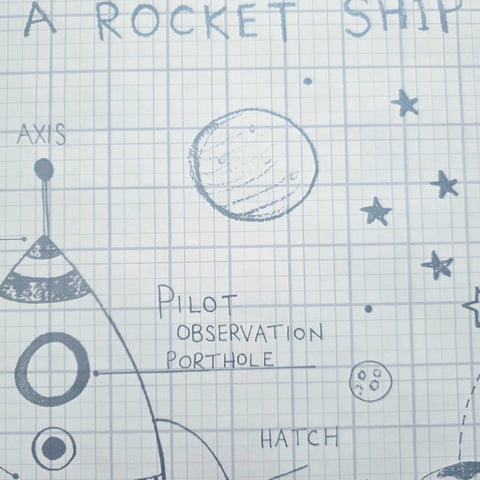 A ROCKET SHIP
AXIS
PILOT
OBSERVATION
PORTHOLE
HATCH